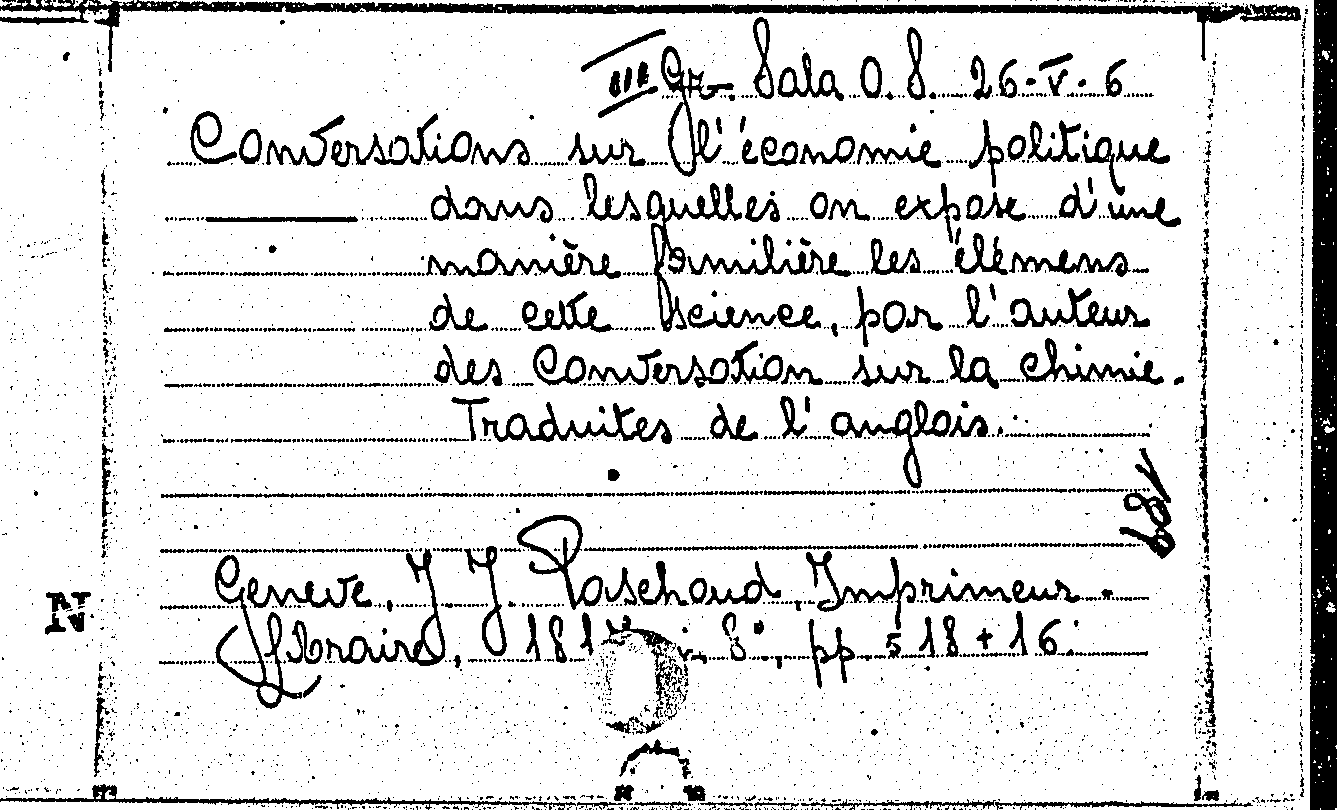 III Gr. Sala O. S. 26-V-6
Conversations sur l'économie politique
dans lesquelles on expose d'une
manière familière les élémens
de cette science, par l'auteur
des Conversation sur la chimie.
Traduites de l'anglois.
Geneve, J. J. Paschoud, Imprimeur-
Libraire, 8°, pp. 518 + 16.
N